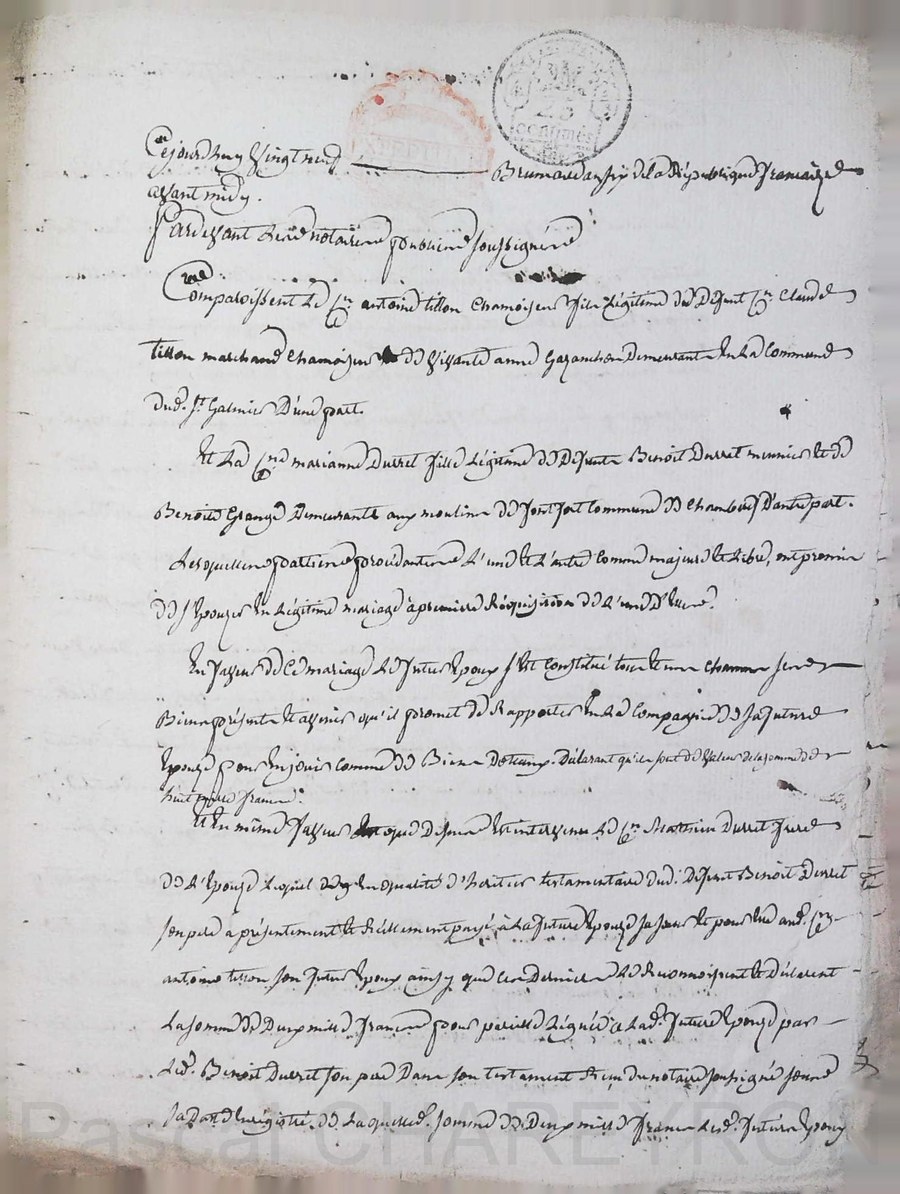 25
CENTIMES
Cejourdhuy Vingt neuf Brumaire an six de la République francaize
avant midy.
Pardevant Les notaires publics soussignés
Comparoissent Le Cen antoine tillon chamoiseur fils Légitime de Defunt Cen Claude
tillon marchand chamoiseur et de vivante anne Demeurant En La Commune
dud. St Galmier D'une part.
Et La Cne marianne Durret fille Légitime de Defunt Benoit Durret meunier et de
Benoite Grange Demeurante aux moulins de fontfort Commune de Chamboeuf D'autre part.
Lesquelles parties procédantes L'une et L'autre Comme majeure et Libre, ont promis
de s'Epouzer En Légitime mariage à premiere Réquisition de L'une D'Elles.
En faveur de Ce mariage Le futur Epoux s'est Constitué tous et uns chacuns ses
Biens présents et avenir qu'il promet de Rapporter En La Compagnie de sa future
Epouze pour En jouir Comme de Biens Dotaux. Déclarant qu'ils sont de Valeur de la somme de
huit mille francs.
Et En même faveur que Dessus Est intervenu Le Cen Mathieu Durret frere
de L'Epouze Lequel En qualité d'heritier testamentaire dud. Defunt Benoit Durret
son pere a présentement et Réellement payé à La future Epouze sa soeur Et pour Elle aud. Cen
antoine tillon son futur Epoux ainsy que Ces Derniers Le Reconnoissent et Déclarent
La somme de Deux mille francs pour pareille Léguée a Lad. future Epouze par
Led. Benoit Durret son pere Dans son testament Recu du notaire soussigné sous
sa datte Enregistré. de Laquelle d. somme de Deux mille francs Led. futur Epoux
Pascal CHAREYRON